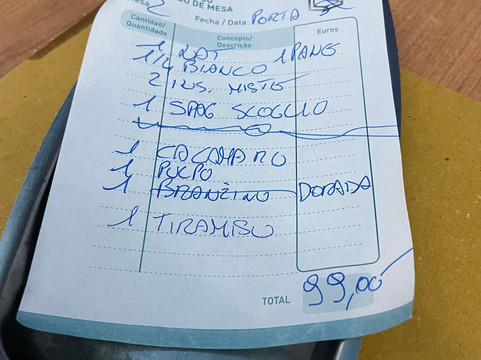 DO DE MESA
Mesa 2 Fecha / Data PORTA
Cantidad/ Quantidade Concepto/ Descrição Euros
1 NAT 1 PANE
1 1/4 BIANCO
2 INS. MISTE
1 SPAG SCOGLIO
1 CALAMARO
1 PULPO
1 BRANZINO DORADA
1 TIRAMISU
TOTAL 99,00